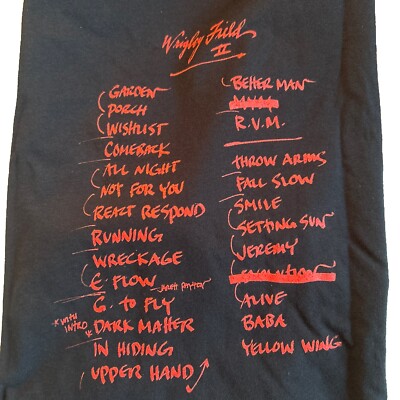 Wrigley Field
II
GARDEN
PORCH
WISHLIST
COMEBACK
ALL NIGHT
NOT FOR YOU
REACT RESPOND
RUNNING
WRECKAGE
E. FLOW
G. TO FLY
*WITH INTRO* DARK MATTER
IN HIDING
UPPER HAND
BETTER MAN
R.V.M.
THROW ARMS
FALL SLOW
SMILE
SETTING SUN
JEREMY
ALIVE
BABA
YELLOW WING